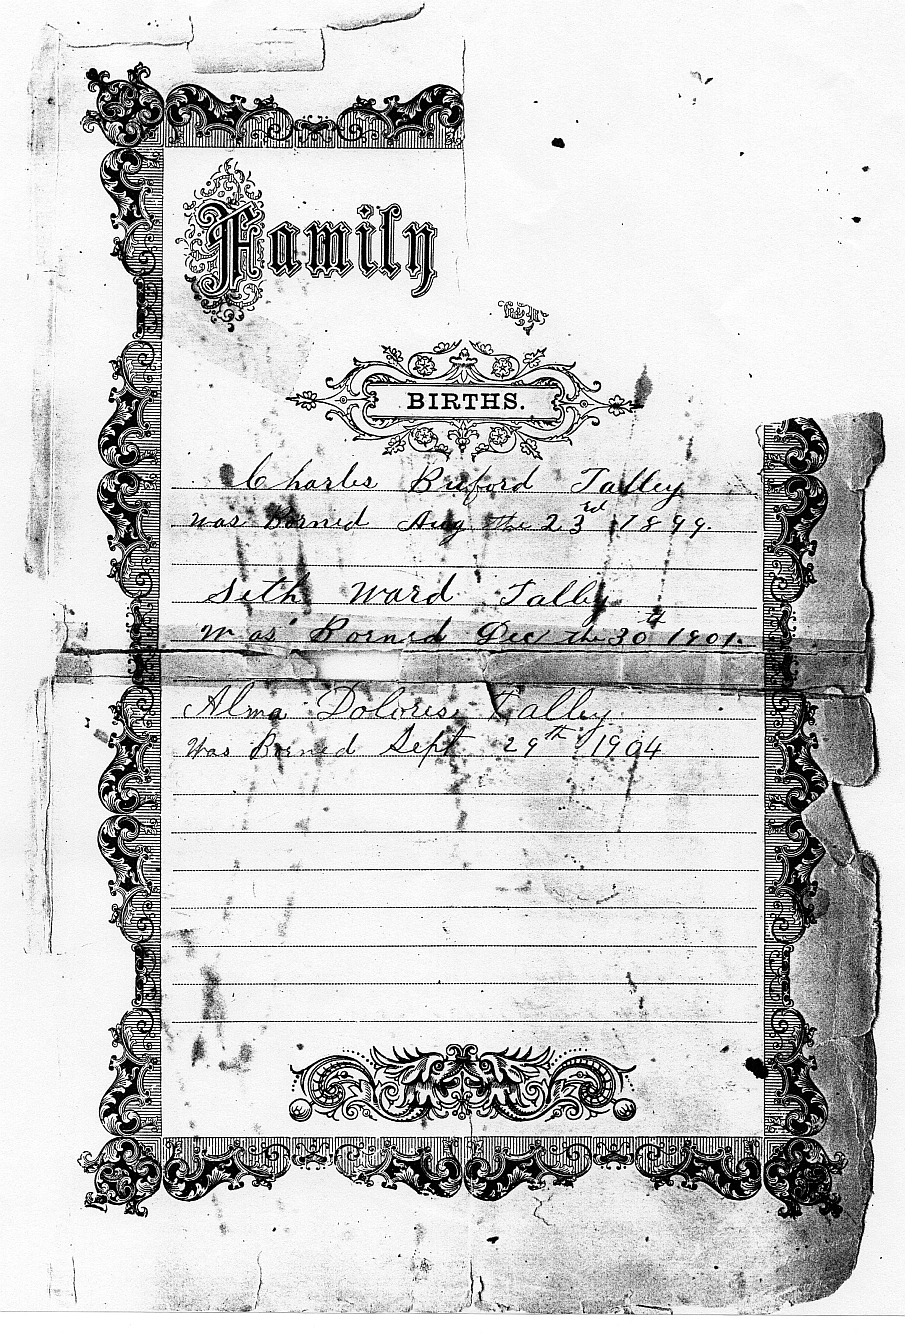 Family
BIRTHS.
Charles Buford Talley
was Borned Aug the 23rd 1899.
Seth Ward Talley
Was Borned Dec the 30th 1901.
Alma Dolores Talley
Was Borned Sept 29th 1904